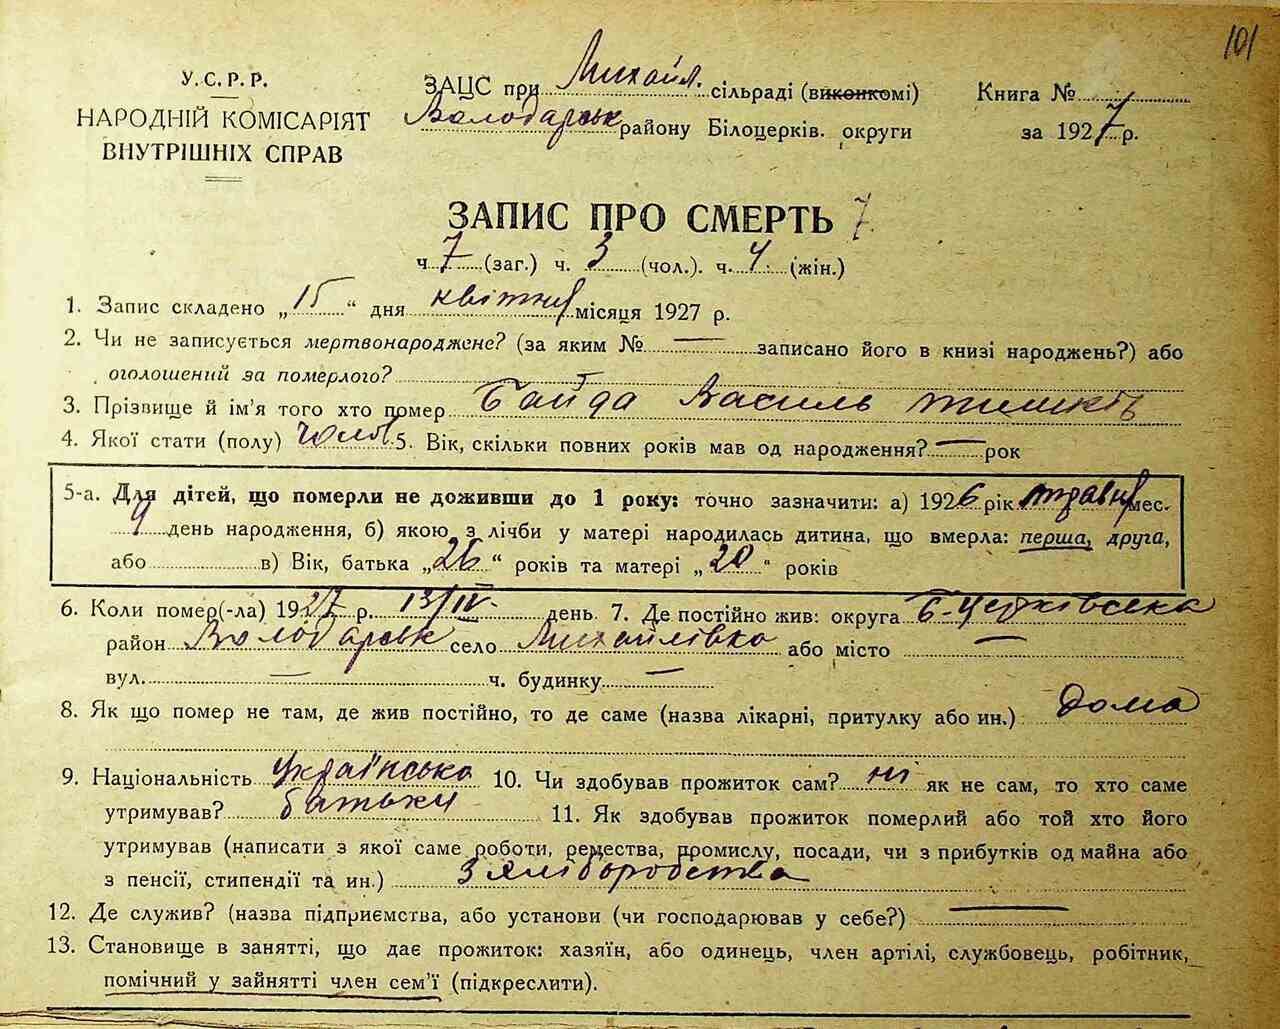 101
У.С.Р.Р.
НАРОДНІЙ КОМІСАРІЯТ
ВНУТРІШНІХ СПРАВ
ЗАЦС при Михайл. сільраді (виконкомі)
Володарськ району Білоцерків. округи
Книга №
за 1927 р.
ЗАПИС ПРО СМЕРТЬ 7
ч. 7 (заг.) ч. 3 (чол.). ч. 4 (жін.)
1. Запис складено „15“ дня квітня місяця 1927 р.
2. Чи не записується мертвонароджене? (за яким № — записано його в книзі народжень?) або
оголошений за померлого?
3. Прізвище й ім'я того хто помер Байда Василь Тишків
4. Якої стати (полу) чолов 5. Вік, скільки повних років мав од народження? — рок
5-а. Для дітей, що померли не доживши до 1 року: точно зазначити: а) 1926 рік травня мес.
9 день народження, б) якою з лічби у матері народилась дитина, що вмерла: перша, друга,
або в) Вік, батька „26“ років та матері „20“ років
6. Коли помер(-ла) 1927 р. 13/IV. день. 7. Де постійно жив: округа Б-Церківська
район Володарськ село Михайлівка або місто —
вул. — ч. будинку —
8. Як що помер не там, де жив постійно, то де саме (назва лікарні, притулку або ин.) дома
9. Національність українська 10. Чи здобував прожиток сам? ні як не сам, то хто саме
утримував? батьки 11. Як здобував прожиток померлий або той хто його
утримував (написати з якої саме роботи, ремества, промислу, посади, чи з прибутків од майна або
з пенсії, стипендії та ин.) З хліборобства
12. Де служив? (назва підприємства, або установи (чи господарював у себе?) —
13. Становище в занятті, що дає прожиток: хазяїн, або одинець, член артілі, службовець, робітник,
помічний у зайнятті член сем'ї (підкреслити).